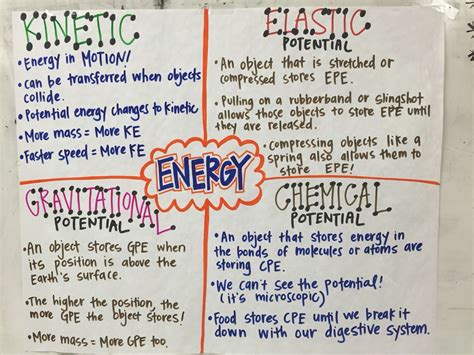 KINETIC
• Energy in MOTION!
• can be transferred when objects
collide.
• Potential energy changes to kinetic
• More mass = More KE
• Faster speed = More KE
ELASTIC
POTENTIAL
• An object that is stretched or
compressed stores EPE.
• Pulling on a rubberband or slingshot
allows those objects to store EPE until
they are released.
• compressing objects like a
spring also allows them to
store EPE!
ENERGY
GRAVITATIONAL
POTENTIAL
• An object stores GPE when
its position is above the
Earth's surface.
• The higher the position, the
more GPE the object stores!
• More mass = More GPE too.
CHEMICAL
POTENTIAL
• An object that stores energy in
the bonds of molecules or atoms are
storing CPE.
• We can't see the potential!
(it's microscopic)
• Food stores CPE until we break it
down with our digestive system.